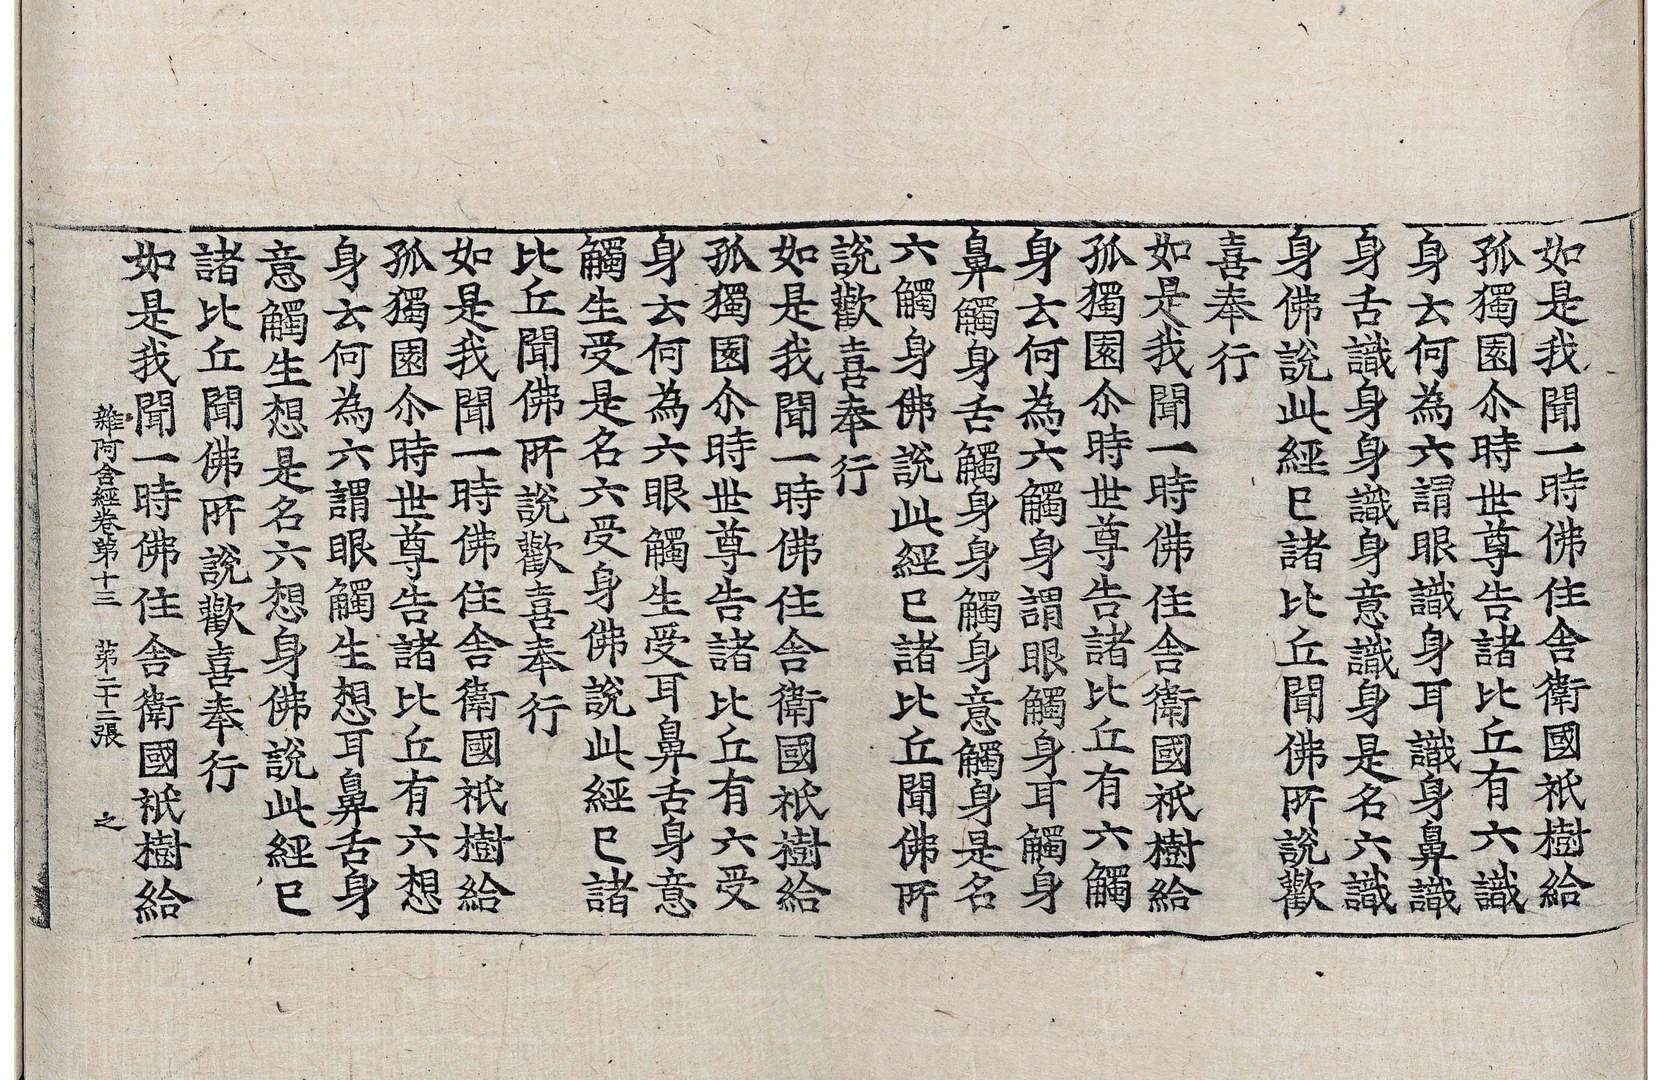 如是我聞一時佛住舍衛國祇樹給
孤獨園尒時世尊告諸比丘有六識
身云何為六謂眼識身耳識身鼻識
身舌識身身識身意識身是名六識
身佛說此經已諸比丘聞佛所說歡
喜奉行
如是我聞一時佛住舍衛國祇樹給
孤獨園尒時世尊告諸比丘有六觸
身云何為六觸身謂眼觸身耳觸身
鼻觸身舌觸身身觸身意觸身是名
六觸身佛說此經已諸比丘聞佛所
說歡喜奉行
如是我聞一時佛住舍衛國祇樹給
孤獨園尒時世尊告諸比丘有六受
身云何為六眼觸生受耳鼻舌身意
觸生受是名六受身佛說此經已諸
比丘聞佛所說歡喜奉行
如是我聞一時佛住舍衛國祇樹給
孤獨園尒時世尊告諸比丘有六想
身云何為六謂眼觸生想耳鼻舌身
意觸生想是名六想身佛說此經已
諸比丘聞佛所說歡喜奉行
如是我聞一時佛住舍衛國祇樹給
雜阿含經卷第十三 第二十二張 之